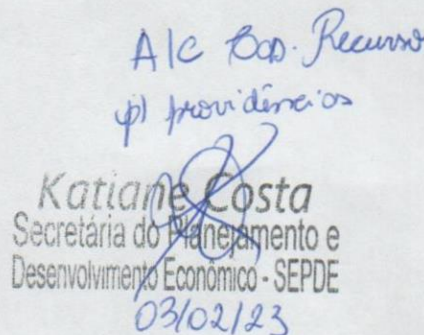 A/C Bco. Recurso
p/ providências
Katiane Costa
Secretária do Planejamento e
Desenvolvimento Econômico - SEPDE
03/02/23